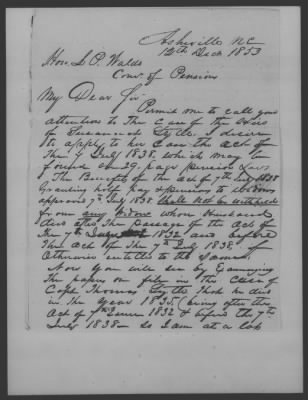 Asheville N.C.
12th Decr 1853
Hon. L. P. Waldo
Com. of Pension
My Dear Sir
Permit me to call your
attention to the case of the Heirs
of Susannah Lytle. I desire
to apply to her case the act of
the 7 July 1838. which may be
found on 29. page pension Laws
The Benefits of the Act of 7th July 1838
Granting half pay & pensions to Widows
approved 7th July 1838. Shall not be withheld
from any widow whose Husband
dies after the passage of the act of
the 7th June 1832 and before
the act of the 7th July 1838. if
otherwise entitled to the same.
Now you will see by Examining
the papers on file in the claim of
Capt Thomas Lytle that he died
in the year 1835 (being after the
Act of 7th June 1832 & before the 7th
July 1838. So I am at a loss